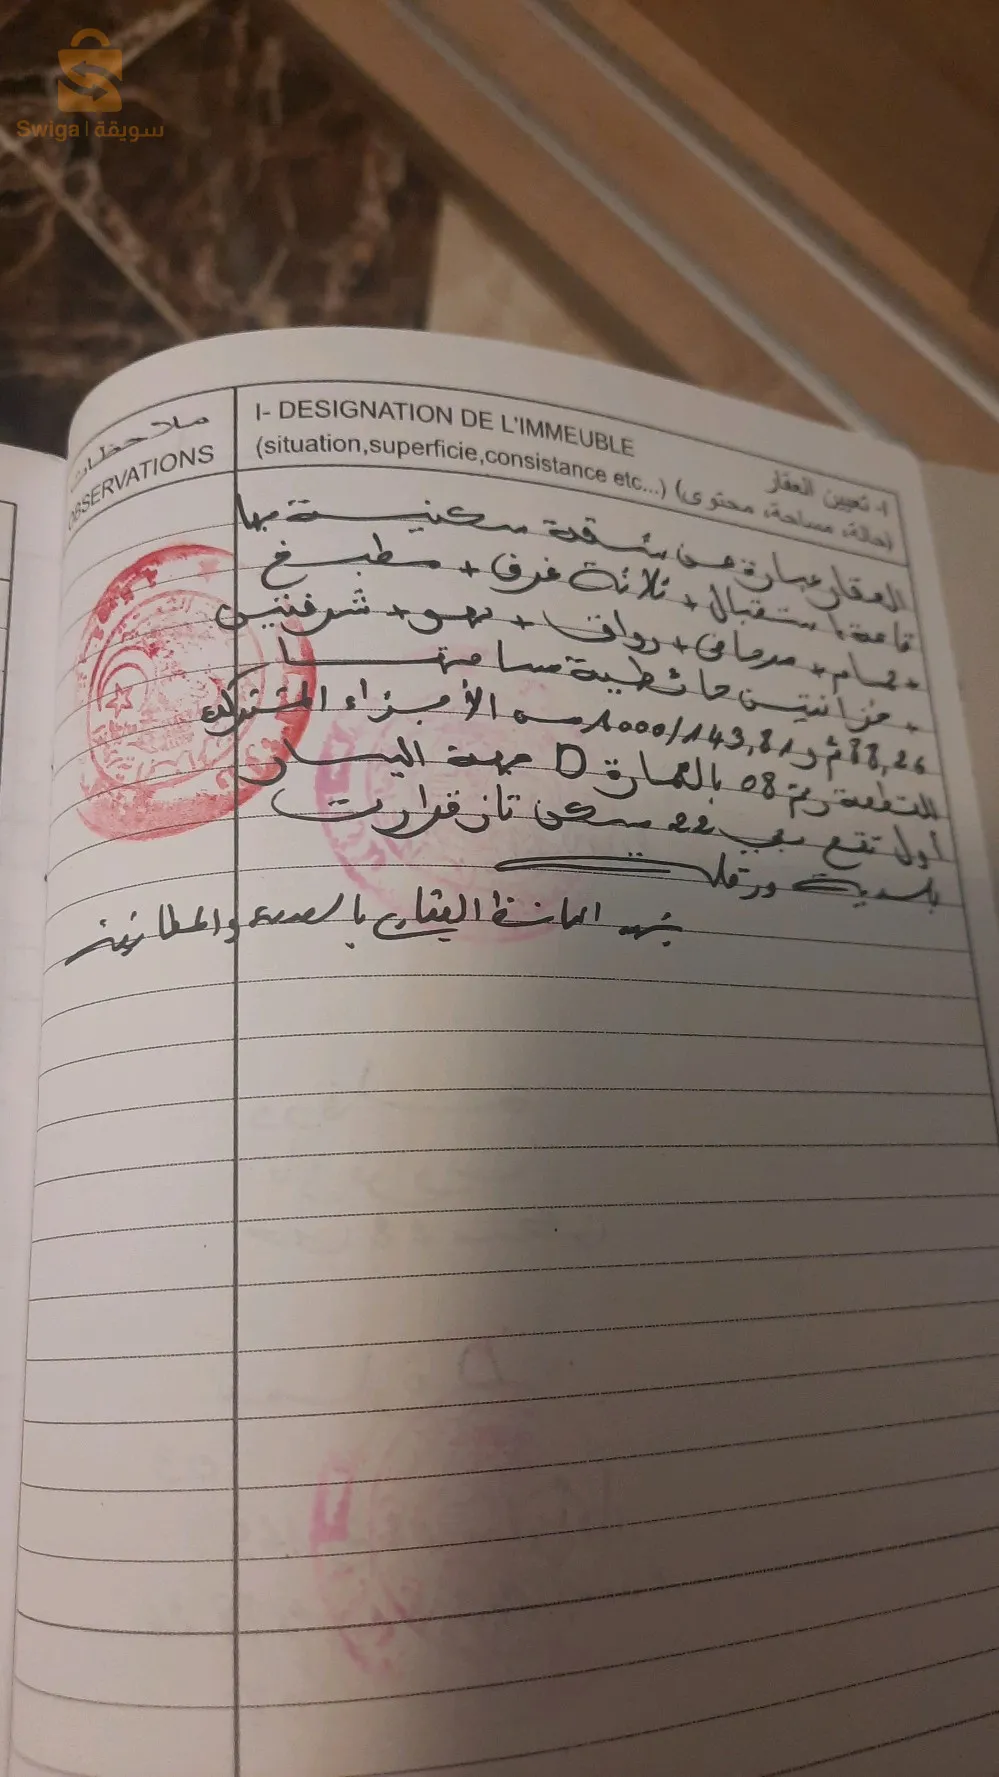 Swiga | سويقة
ملاحظات
OBSERVATIONS
I- DESIGNATION DE L'IMMEUBLE
(situation,superficie,consistance etc...)
I- تعيين العقار
(حالة، مساحة، محتوى)
العقار عبارة عن شقة سكنية بها
قاعة استقبال + ثلاثة غرف + مطبخ
+ حمام + مرحاض + رواق + بهو + شرفتين
+ خزانتين حائطية مساحتها
88,26 م² و 143,81/1000 من الأجزاء المشتركة
القطعة رقم 08 بالعمارة D جهة اليسار
أول تقع بحي 22 سكن
بلدية ورقلة
يشهد المحافظ العقاري بالصحة والمطابقة